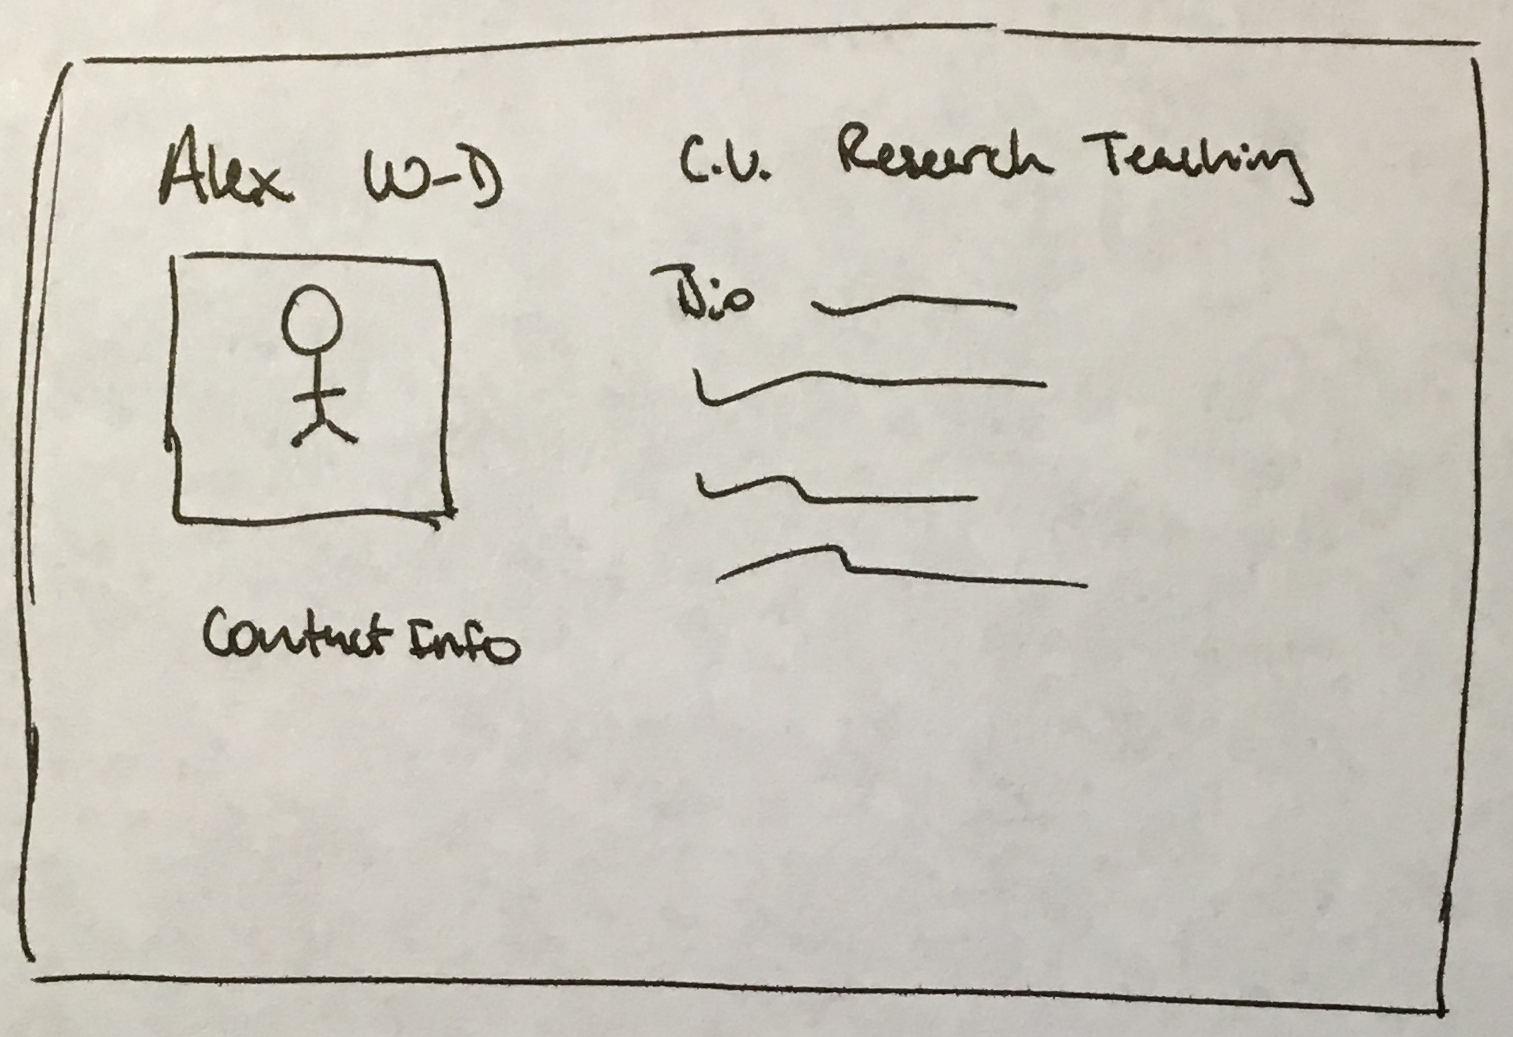 Alex W-D C.V. Research Teaching
Bio
Contact Info